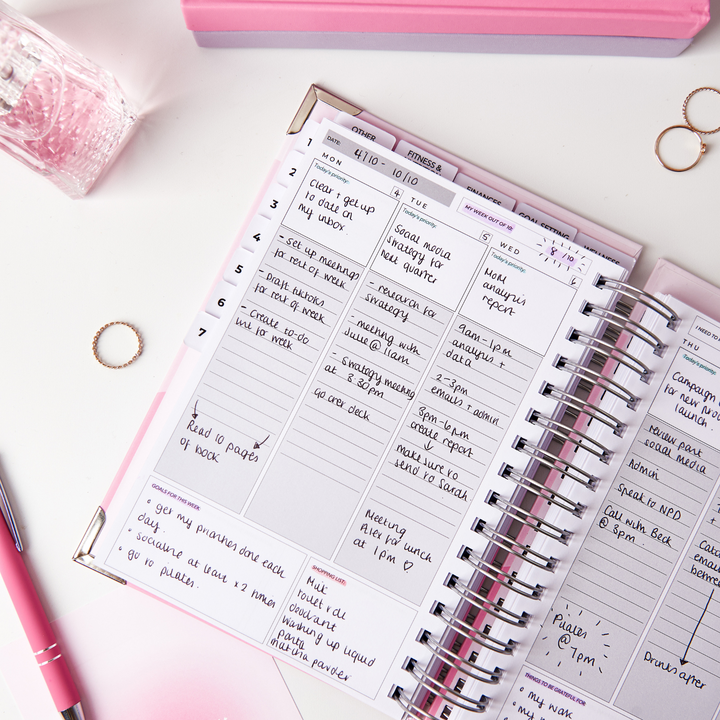 OTHER
FITNESS &
FINANCES
GOAL SETTING
WELLNESS
1
2
3
4
5
6
7
DATE: 4/10 - 10/10
MY WEEK OUT OF 10:
8 /10
MON
4
Today's priority:
Clear + get up
to date on
my inbox.
- set up meetings
for rest of week
- Draft tiktoks
for rest of week
- Create to-do
list for week
Read 10 pages
of book
TUE
5
Today's priority:
Social media
strategy for
next quarter
- research for
strategy
- meeting with
Julie @ 11am
- strategy meeting
at 3.30pm
Go over deck
WED
6
Today's priority:
MoM
analysis
report
9am-1pm
analysis +
data
2-3pm
emails + admin
3pm-6pm
create report
make sure to
send to Sarah
Meeting
Alex for lunch
at 1pm ♡
GOALS FOR THIS WEEK:
• get my priorities done each
day.
• socialise at least x 2 times
• go to pilates.
SHOPPING LIST:
Milk
toilet roll
deodorant
washing up liquid
pasta
matcha powder
I NEED TO
THU
Today's priority:
Campaign
for new
launch.
review past
social media
Admin
Speak to NPD
Call with Beck
@ 3pm
Pilates
@ 7pm
Call
emails
Drinks after
THINGS TO BE GRATEFUL FOR:
• my walk
• my